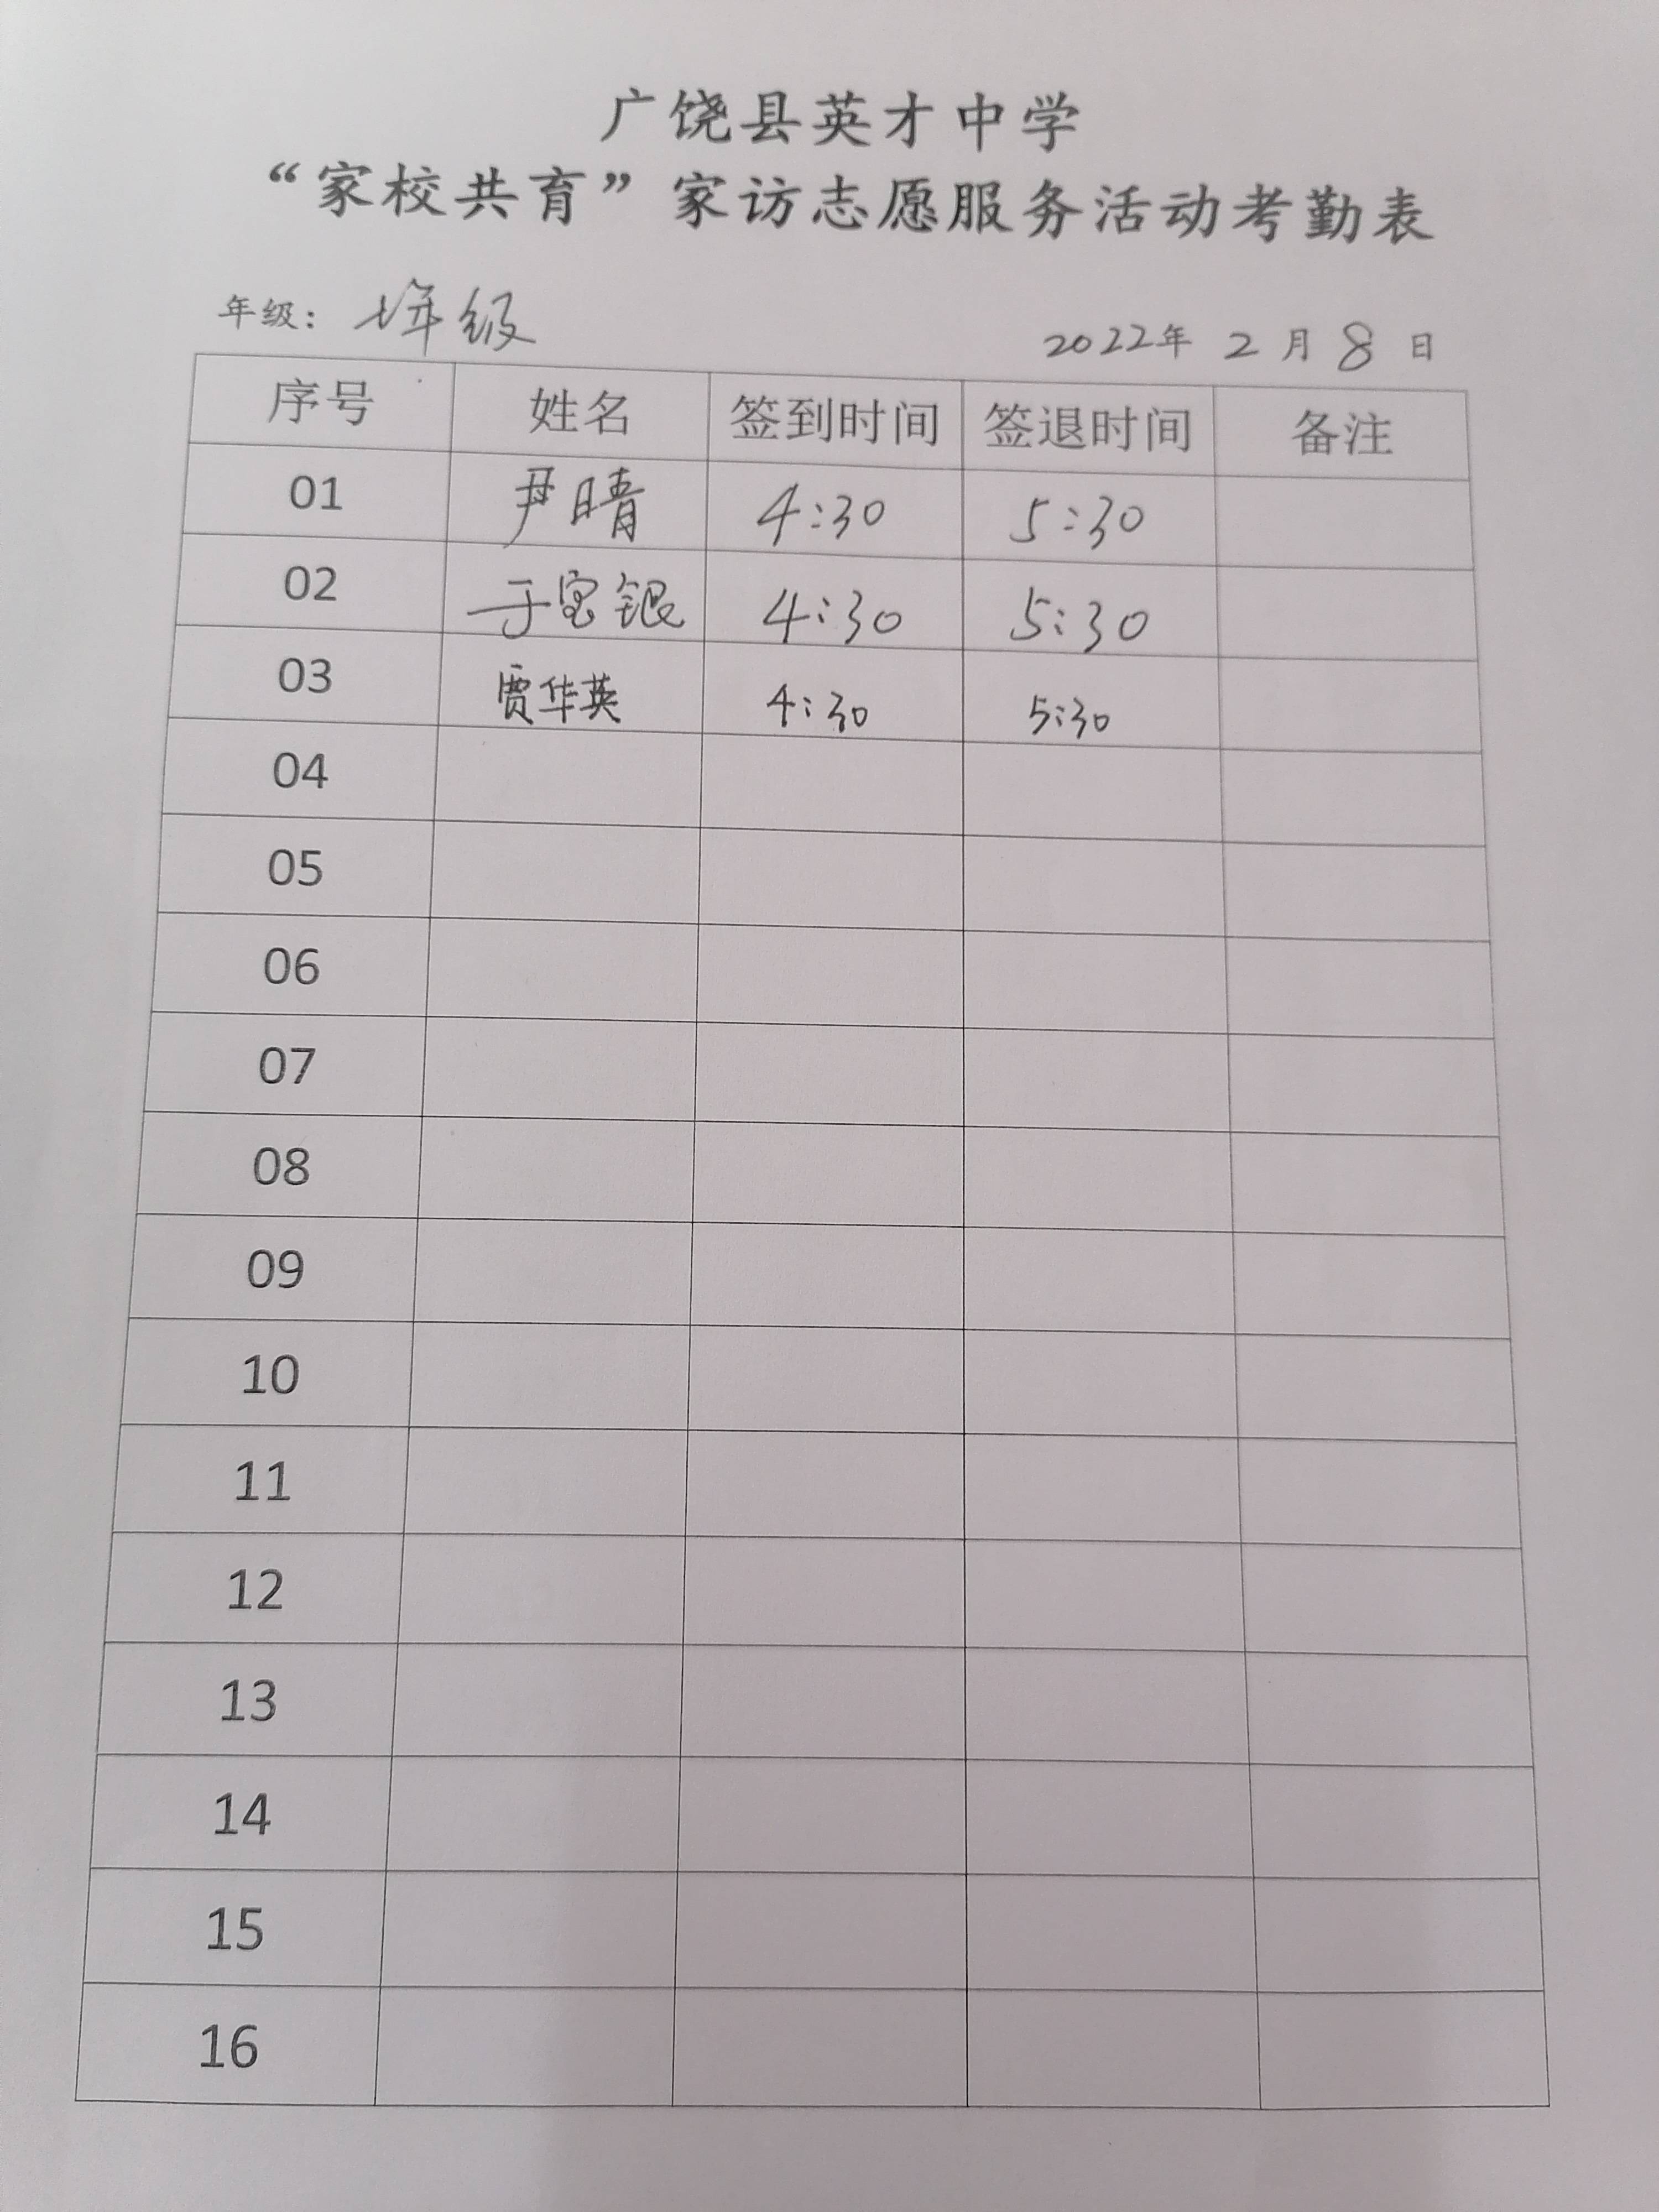 广饶县英才中学
“家校共育”家访志愿服务活动考勤表
年级：七年级 2022年 2 月 8 日
序号 姓名 签到时间 签退时间 备注
01 尹晴 4:30 5:30
02 于宝银 4:30 5:30
03 贾华英 4:30 5:30
04
05
06
07
08
09
10
11
12
13
14
15
16